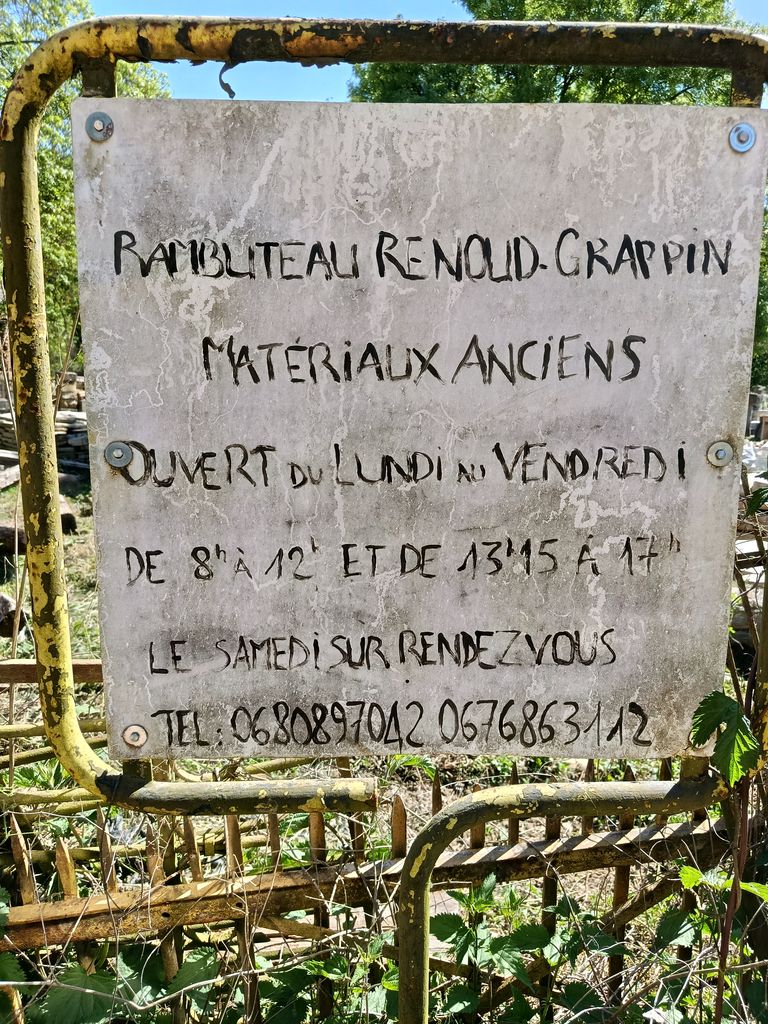 RAMBUTEAU RENOUD-GRAPPIN
MATÉRIAUX ANCIENS
OUVERT DU LUNDI AU VENDREDI
DE 8h À 12h ET DE 13h15 À 17h
LE SAMEDI SUR RENDEZ VOUS
TEL: 0680897042 0676863112